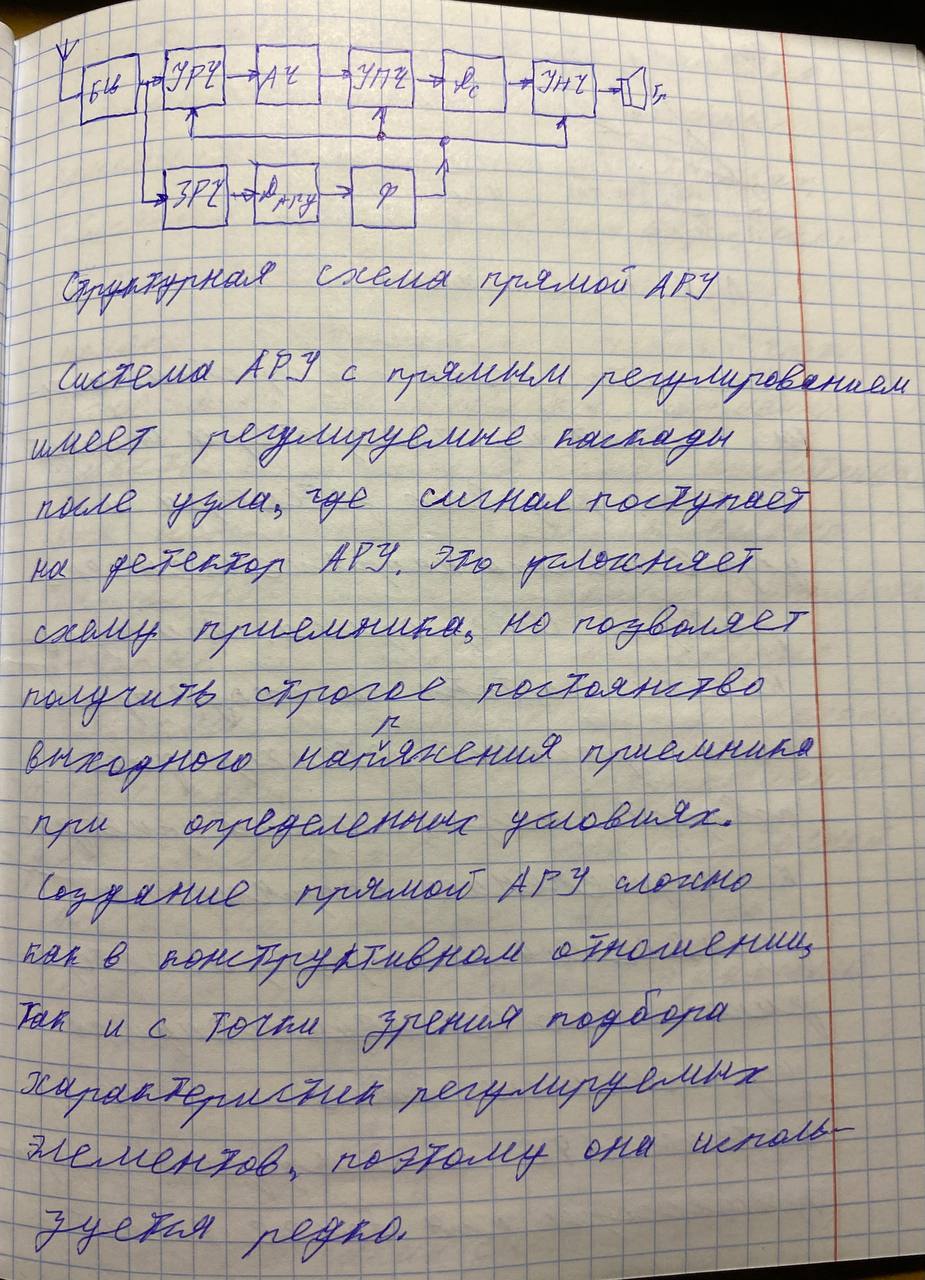 БЦ УРЧ АЧ УПЧ Дс УНЧ Гр
ЗРЧ ДАРУ Ф
Структурная схема прямой АРУ
Система АРУ с прямым регулированием
имеет регулируемые каскады
после узла, где сигнал поступает
на детектор АРУ. это усложняет
схему приемника, но позволяет
получить строгое постоянство
выходного напряжения приемника
при определенных условиях.
Создание прямой АРУ сложно
как в конструктивном отношении,
так и с точки зрения подбора
характеристик регулируемых
элементов, поэтому она исполь-
зуется редко.